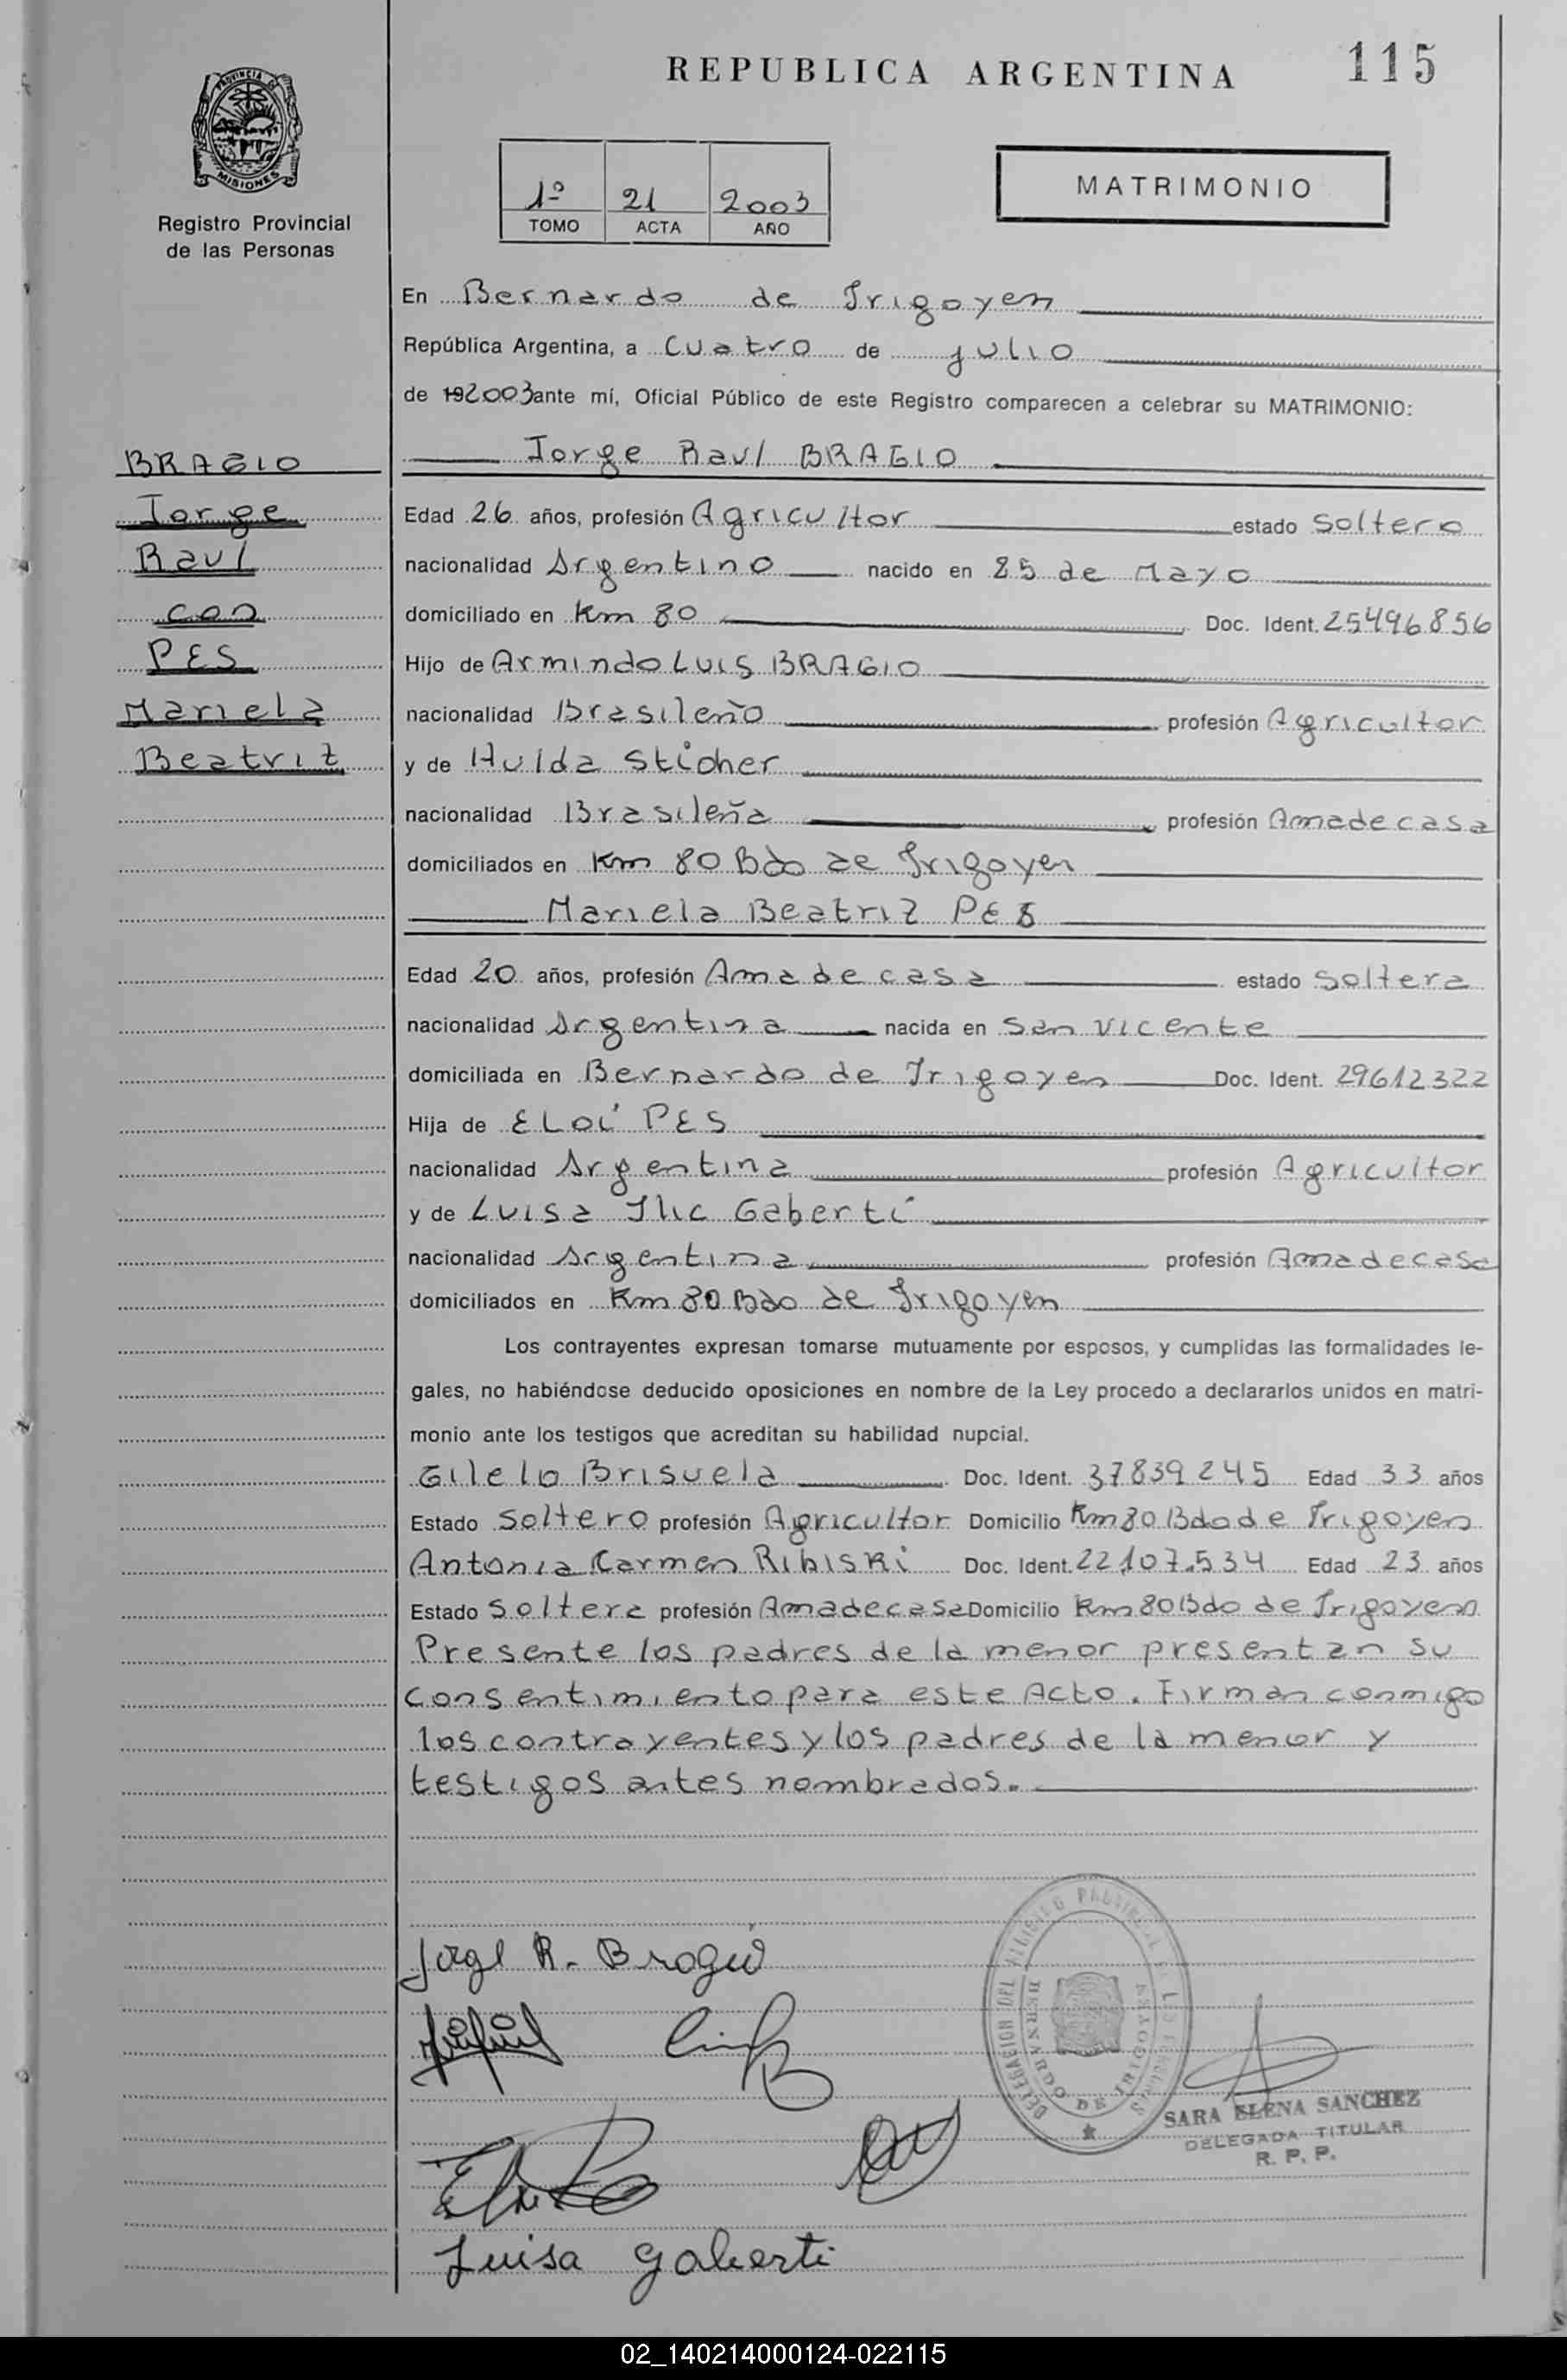 REPUBLICA ARGENTINA
115
PROVINCIA DE
MISIONES
Registro Provincial
de las Personas
1º 21 2003
TOMO ACTA AÑO
MATRIMONIO
En Bernardo de Irigoyen
República Argentina, a Cuatro de julio
de 192003 ante mí, Oficial Público de este Registro comparecen a celebrar su MATRIMONIO:
BRAGIO
Jorge
Raul
con
PES
Mariela
Beatriz
Jorge Raul BRAGIO
Edad 26 años, profesión Agricultor estado Soltero
nacionalidad Argentino nacido en 25 de Mayo
domiciliado en Km 80 Doc. Ident. 25496856
Hijo de Armindo Luis BRAGIO
nacionalidad Brasileño profesión Agricultor
y de Hulda Sticher
nacionalidad Brasileña profesión Ama de casa
domiciliados en Km 80 Bdo de Irigoyen
Mariela Beatriz PES
Edad 20 años, profesión Ama de casa estado Soltera
nacionalidad Argentina nacida en San Vicente
domiciliada en Bernardo de Irigoyen Doc. Ident. 29612322
Hija de ELOí PES
nacionalidad Argentina profesión Agricultor
y de Luisa Ilic Gaberti
nacionalidad Argentina profesión Ama de casa
domiciliados en Km 80 Bdo de Irigoyen
Los contrayentes expresan tomarse mutuamente por esposos, y cumplidas las formalidades le-
gales, no habiéndose deducido oposiciones en nombre de la Ley procedo a declararlos unidos en matri-
monio ante los testigos que acreditan su habilidad nupcial.
Gilelo Brisuela Doc. Ident. 37839245 Edad 33 años
Estado Soltero profesión Agricultor Domicilio Km 80 Bdo de Irigoyen
Antonia Carmen Ribiski Doc. Ident. 22.107.534 Edad 23 años
Estado Soltera profesión Ama de casa Domicilio Km 80 Bdo de Irigoyen
Presente los padres de la menor presentan su
consentimiento para este Acto. Firman conmigo
los contrayentes y los padres de la menor y
testigos antes nombrados.
Jorge R. Bragio
DELEGACION DEL REGISTRO PROVINCIAL DE LAS PERSONAS
BERNARDO DE IRIGOYEN
SARA ELENA SANCHEZ
DELEGADA TITULAR
R. P. P.
Luisa gaberti
02_140214000124-022115